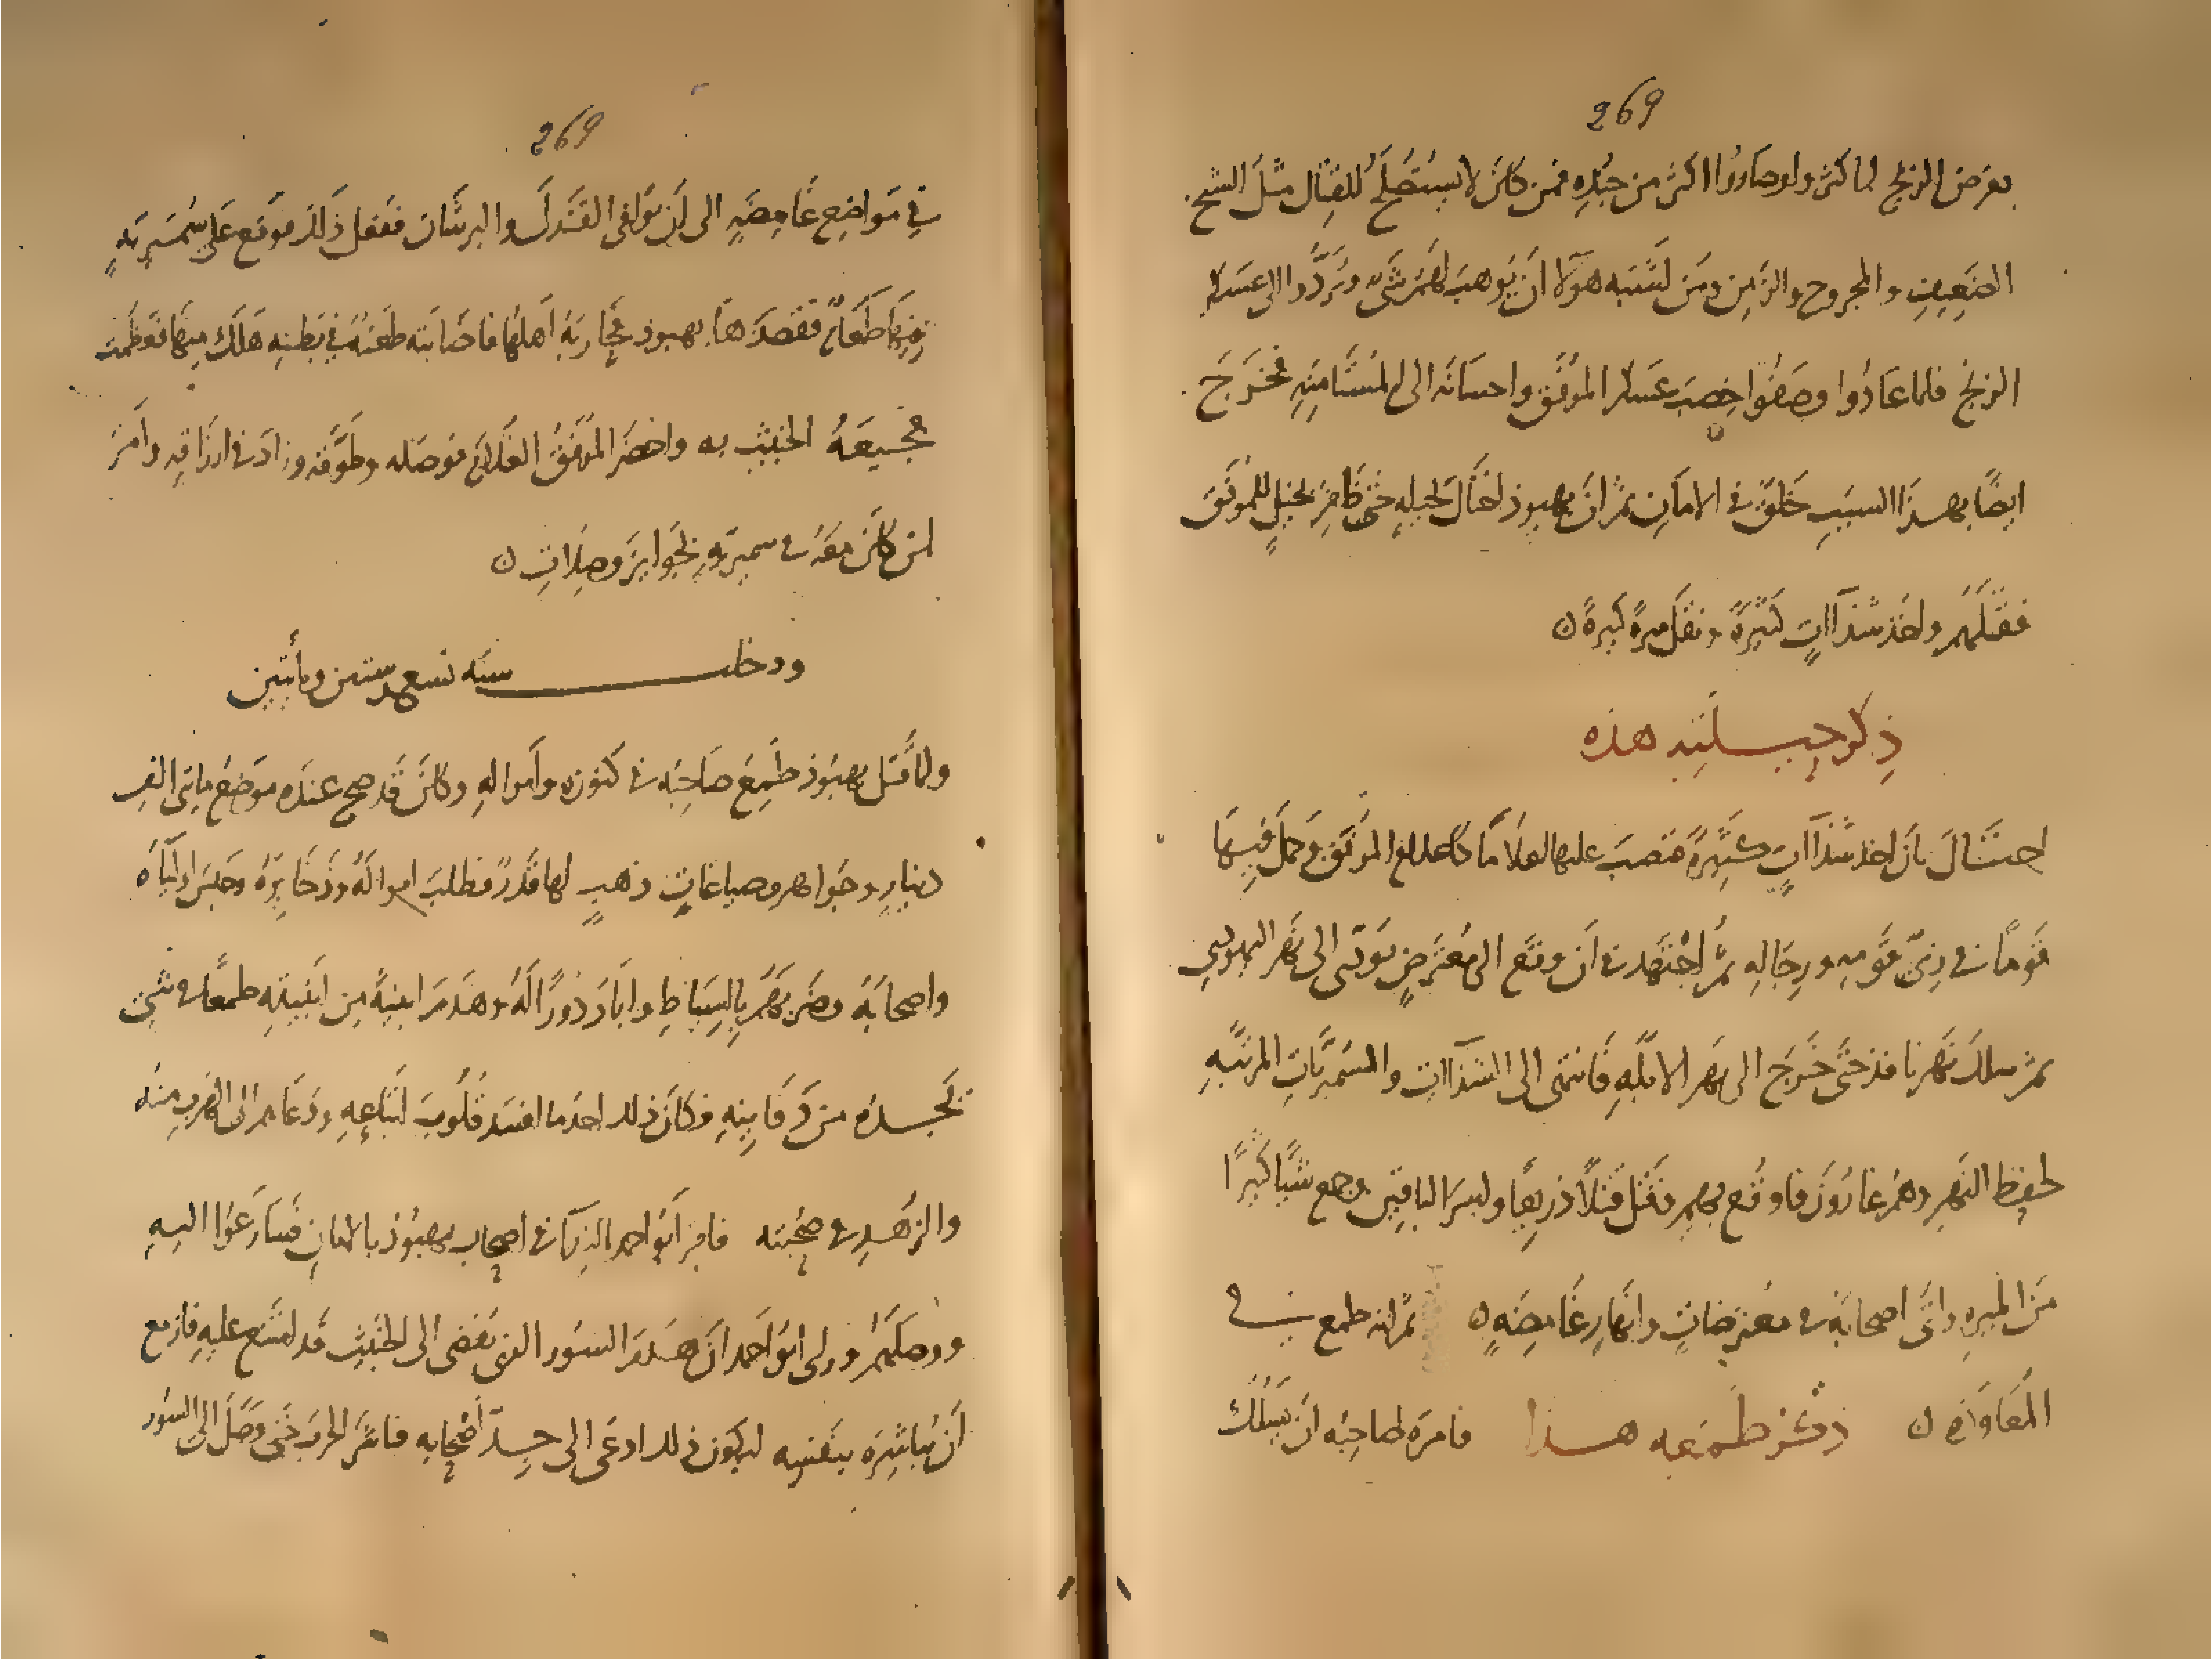 269
بعرض الزنج لما كثروا وصاروا اكثر من جنده فمن كان لا يستصلح للقتال مثل الشيخ
الضعيف والمجروح والزمن ومن اشبه هولا ان يوهب لهم شىء ويردوا الى عسكر
الزنج فلما عادوا وصفوا خصب عسكر الموفق واحسانه الى المستامنة فخرج
ايضا بهذا السبب خلق فى الامان ثم ان بهبوذ احتال لحيله حتى ظفر بخيل للموفق
فقتلهم واخذ شذاات كثيرة ونقل ميرة كبيرة ن
ذكر حيلته هذه
احتال بان اخذ شذاات كثيرة فنصب عليها اعلاما كاعلام الموفق وحمل فيها
قوما فى زى قومه ورجاله ثم اجتهد فى ان وقع الى معترض يودى الى نهر اليهودى
ثم سلك نهر نافذ حتى خرج الى نهر الابله فانتهى الى الشذاات والسميريات المرتبه
لحفظ النهر وهم غارون فاوقع بهم فقتل قتلا ذريعا واسر الباقين وجمع شيا كثيرا
من الميره واتى اصحابه فى معترضات وانهار غامضه ن ثم انه طمع فى
المعاوده ن ذكر طمعه هذا فامره صاحبه ان يسلك
269
فى مواضع غامضه الى ان يوافى القندل والبرشان ففعل ذلك فوقع على سميريه
فيها طعام فقصدها بهبوذ فحاربه اهلها فاصابته طعنه فى بطنه هلك منها فعظمت
فجيعة الخبيث به واحضر الموفق الغلام فوصله وطوقه وزاد فى ارزاقه وامر
لمن كان معه فى سميريه بجوايز وصلات ن
ودخلت سنه تسع وستين ومأتين
ولما قتل بهبوذ طمع صاحبه فى كنوزه وامواله وكان قد صح عنده موضع مايتى الف
دينار وجواهر وصياغات ذهب لها قدر فطلب امواله وذخايره وحبس اولياه
واصحابه وضربهم بالسياط واباد دورا له وهدم ابنية من ابنيته طمعا فى شى
يجده من دفاينه فكان ذلك احد ما افسد قلوب اتباعه ودعاهم الى الهرب منه
والزهد فى صحبته فامر ابو احمد النداء فى اصحاب بهبوذ بالامان فسارعوا اليه
ووصلهم وراى ابو احمد ان هدم السور الذى يفضى الى الخبيث قد امتنع عليه فازمع
ان يباشره بنفسه ليكون ذلك ادعى الى جد اصحابه فباشر الحرب حتى وصل الى السور